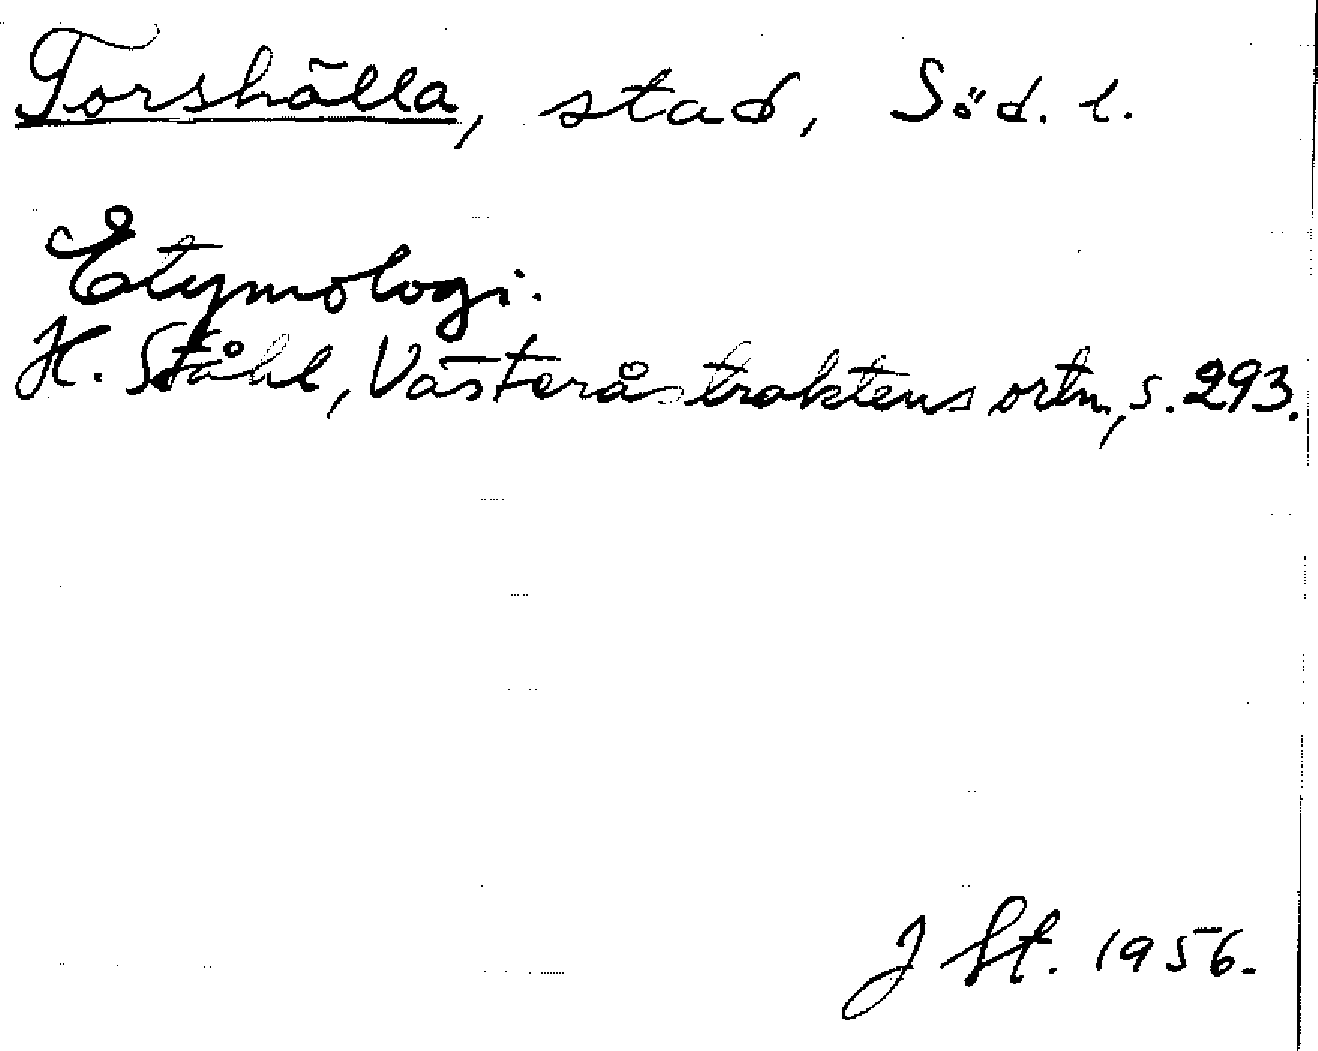 Torshälla, stad, Söd. l.
Etymologi.
H. Ståhl, Västeråstraktens ortn, s. 293.
J St. 1956.